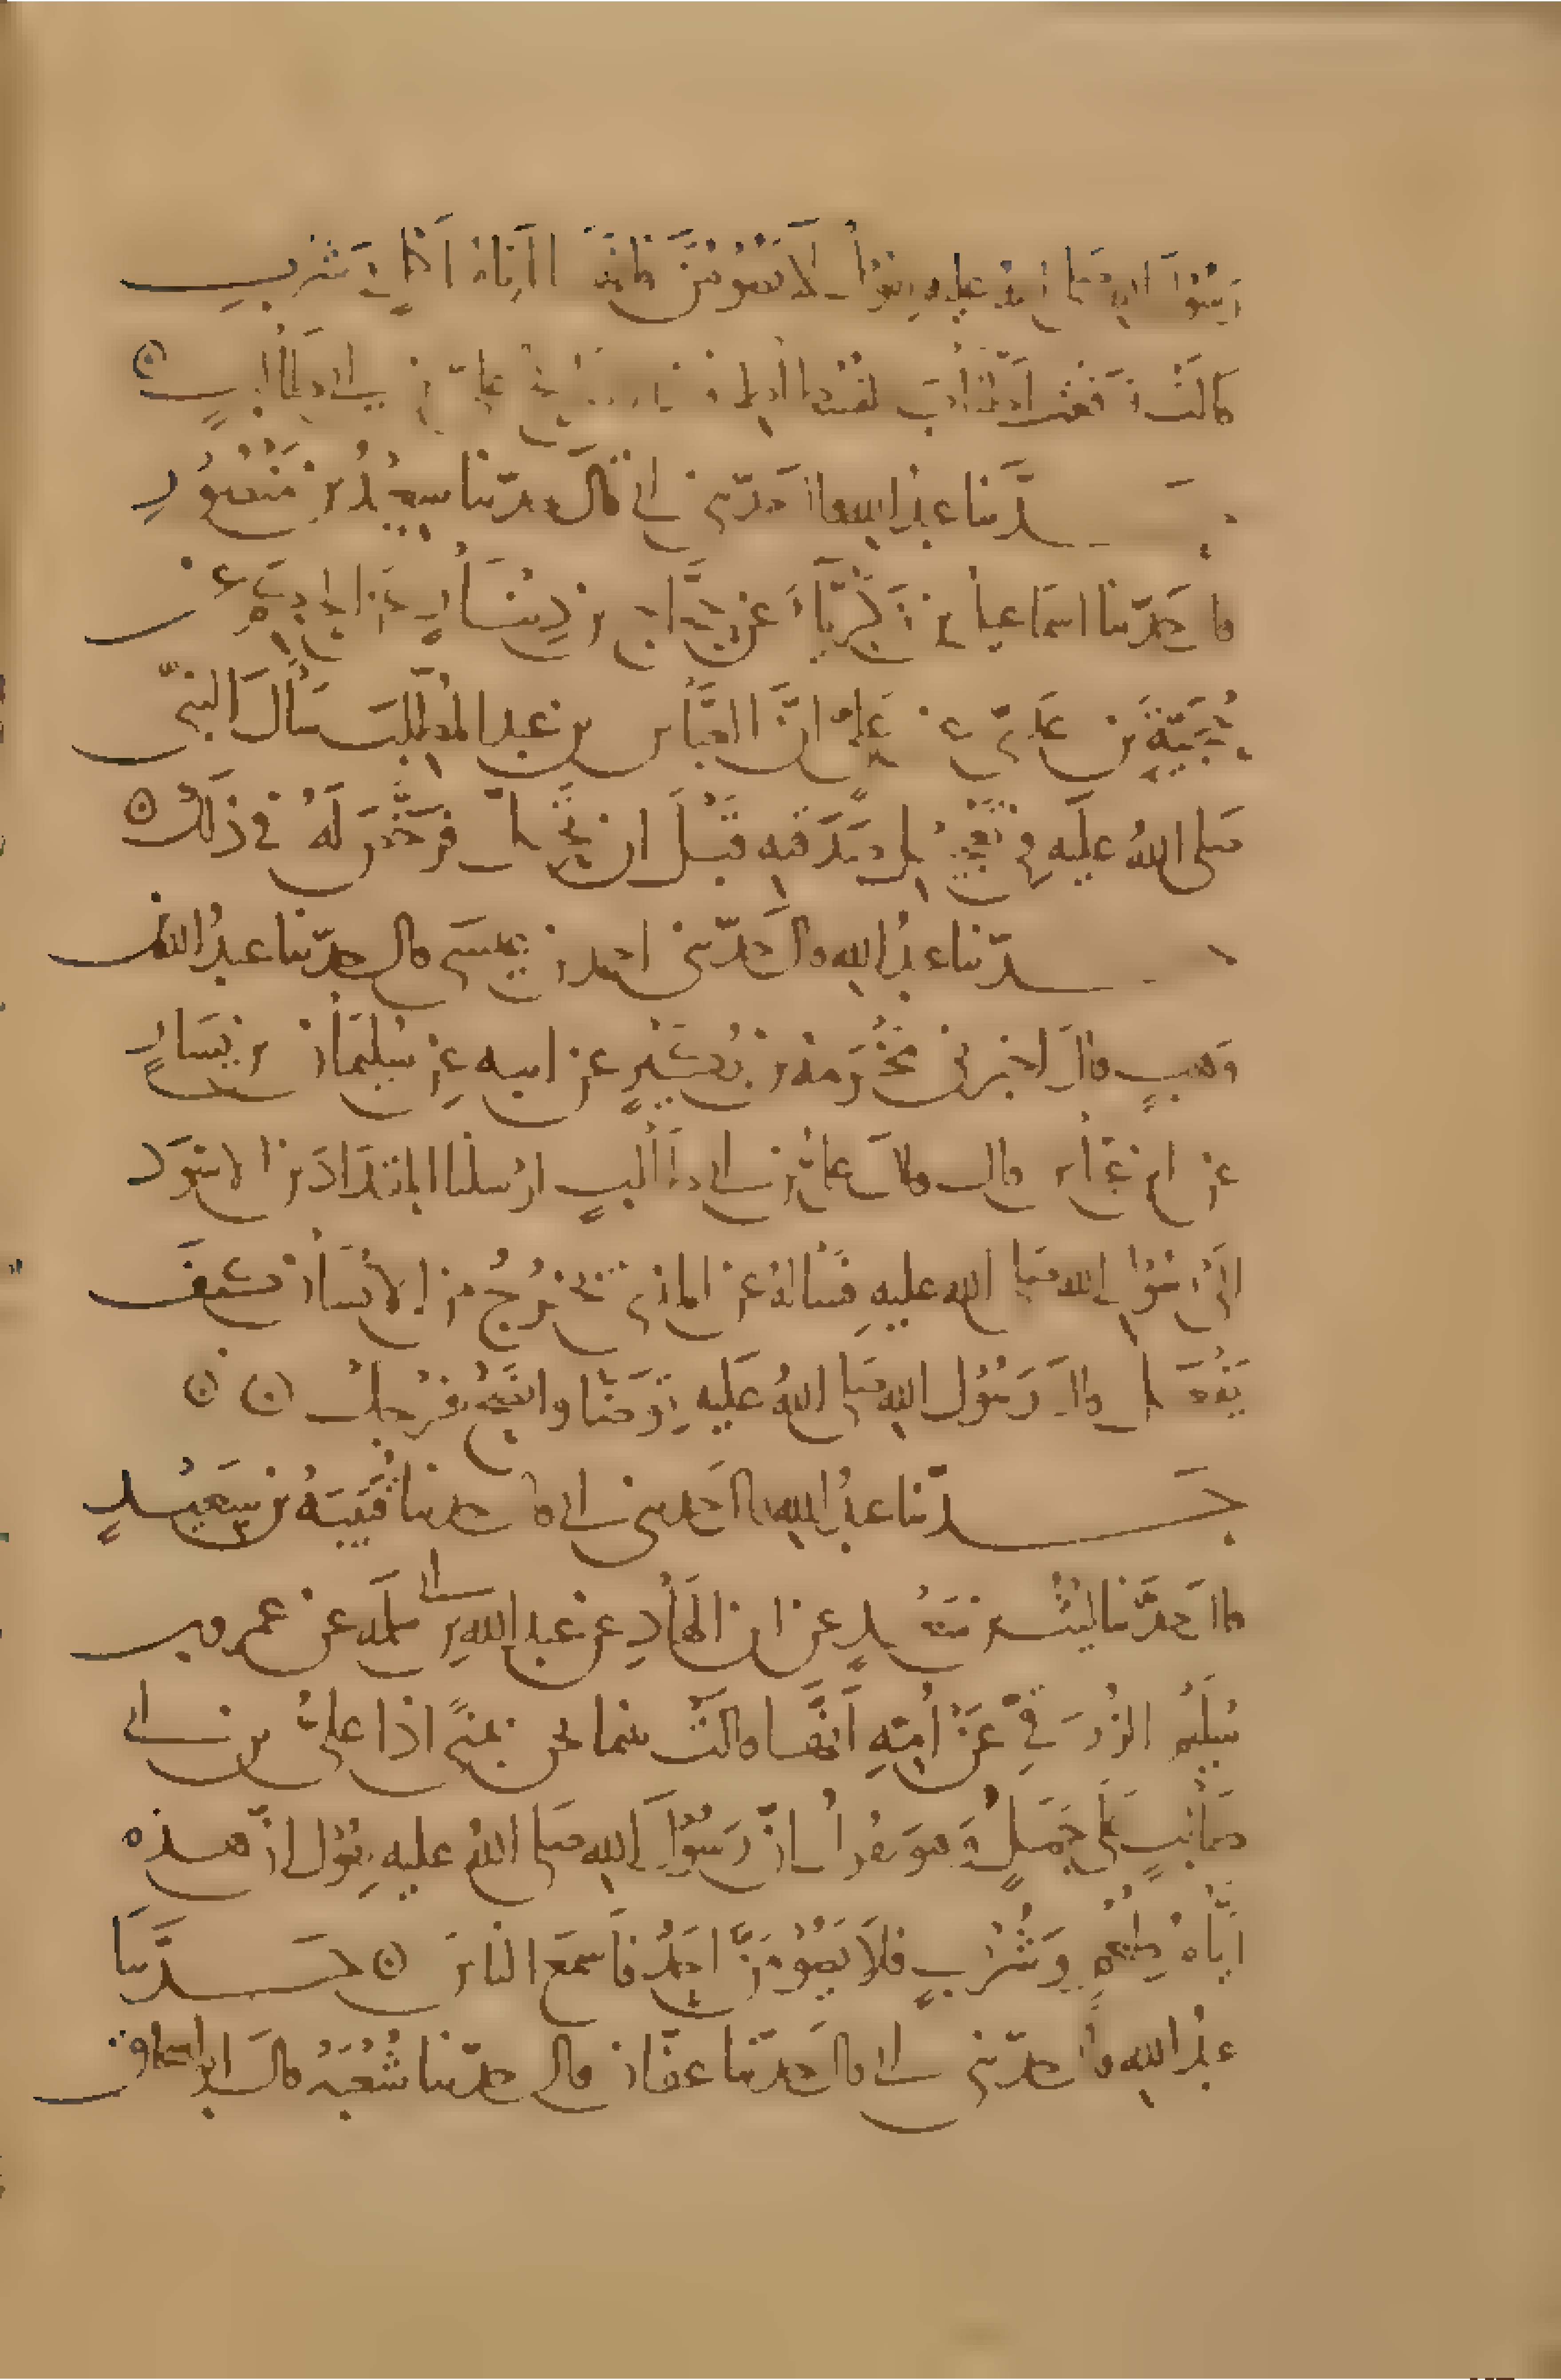 رسول الله صلى الله عليه يقول لا تصومن فإنها أيام أكل وشرب
قالت فرفعت أطناب الفسطاط فإذا علي بن أبي طالب
حدثنا عبد الله قال حدثني أبي قال حدثنا سعيد بن منصور
قال حدثنا اسماعيل بن زكرياء عن حجاج بن دينار عن الحكم عن
حجية بن عدي عن علي ان العباس بن عبد المطلب سأل النبي
صلى الله عليه في تعجيل صدقته قبل ان تحل فرخص له في ذلك
حدثنا عبد الله قال حدثني احمد بن عيسى قال حدثنا عبد الله بن
وهب قال اخبرني مخرمة بن بكير عن ابيه عن سليمان بن يسار
عن ابن عباس قال قال علي بن أبي طالب ارسلنا المقداد بن الاسود
الى رسول الله صلى الله عليه فسأله عن المذي يخرج من الانسان كيف
يفعل قال رسول الله صلى الله عليه توضأ وانضح فرجك
حدثنا عبد الله قال حدثني أبي قال حدثنا قتيبة بن سعيد
قال حدثنا ليث بن سعد عن ابن الهاد عن عبد الله بن أبي سلمه عن عمرو بن
سليم الزرقي عن امه أنها قالت بينما نحن بمنى اذا علي بن أبي
طالب على جمل وهو يقول ان رسول الله صلى الله عليه يقول ان هذه
ايام طعم وشرب فلا يصومن احد فاسمع الناس حدثنا
عبد الله قال حدثني أبي قال حدثنا عفان قال حدثنا شعبة قال ابو اسحاق